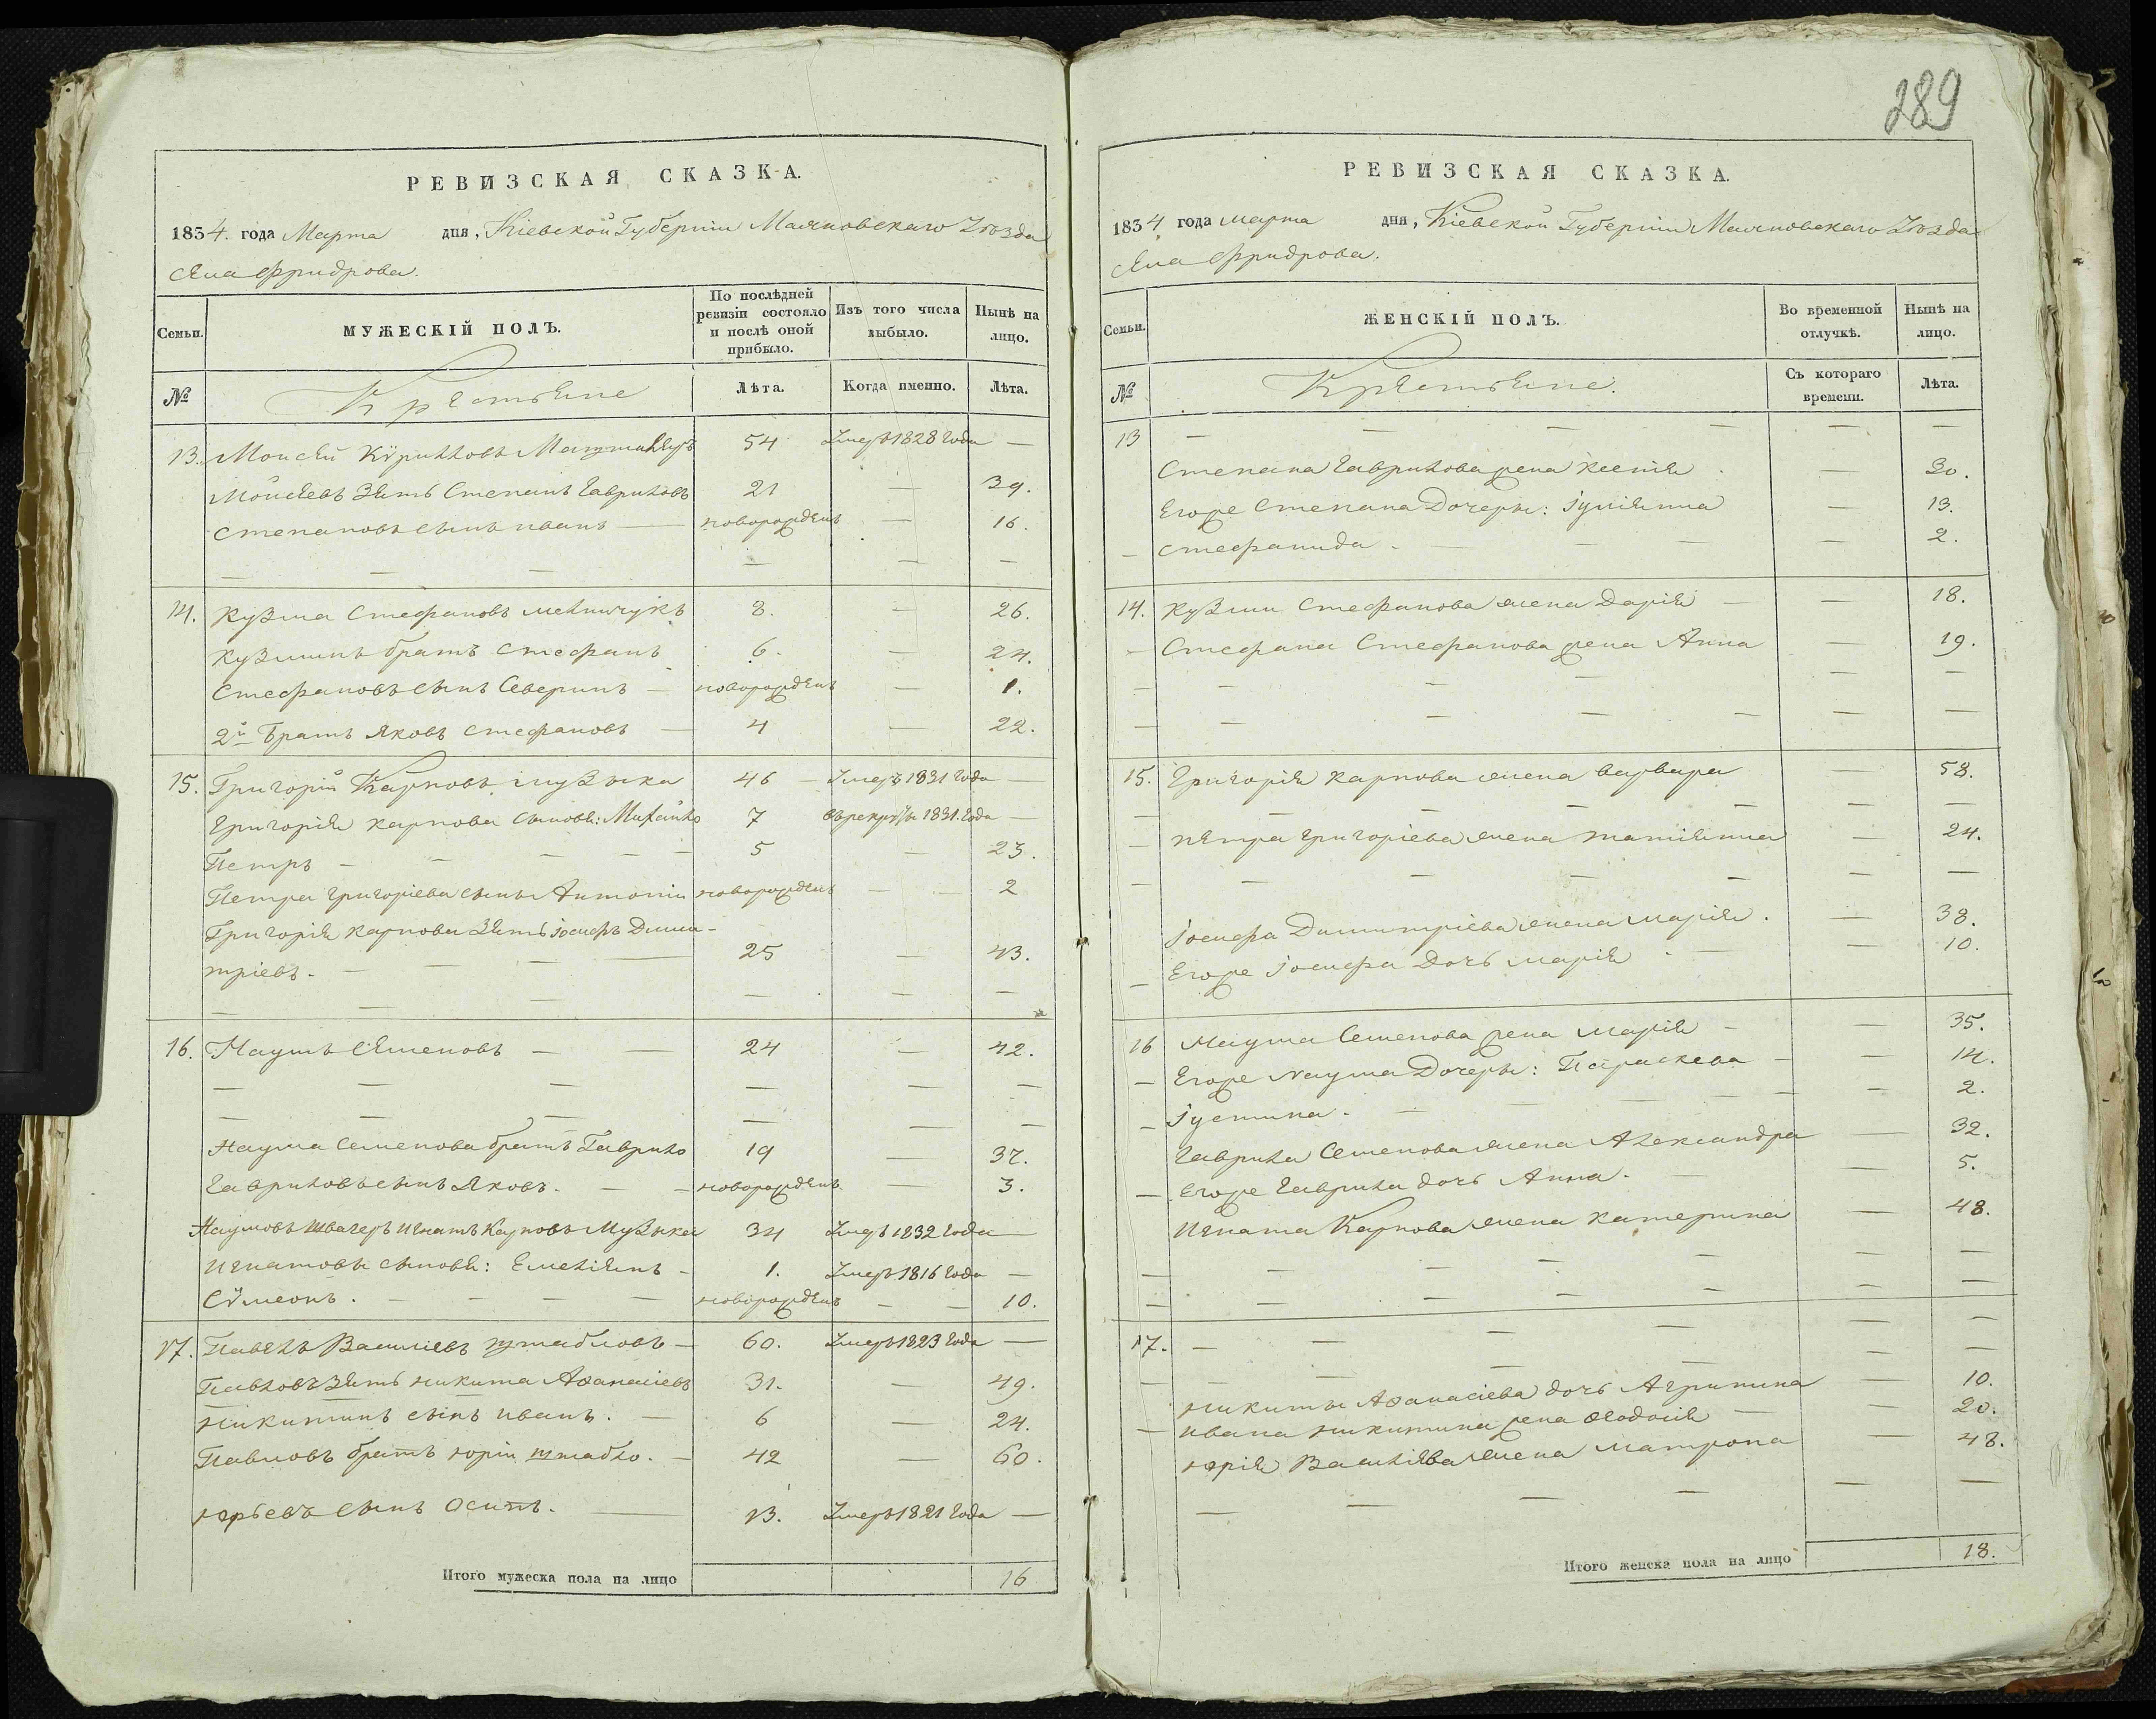 289
РЕВИЗСКАЯ СКАЗКА.
1834. года Марта дня, Кіевской Губерніи Махновскаго Уѣзда
Села Фридрова.
Семьи. МУЖЕСКІЙ ПОЛЪ. По послѣдней ревизіи состояло и послѣ оной прибыло. Изъ того числа выбыло. Нынѣ на лицо.
№ Крестьяне Лѣта. Когда именно. Лѣта.
13. Моисей Кириловъ 54 Умеръ 1828 года —
Моисеевъ Зять Степанъ Гавриловъ 21 — 39.
Степановъ сынъ иванъ — новорожденъ — 16.
— — — — — —
14. Кузма Стефановъ мельничукъ 8. — 26.
Кузминъ братъ Стефанъ 6. — 24.
Стефановъ сынъ Северинъ — новорожденъ — 1.
2й Братъ Яковъ Стефановъ — 4 — 22.
15. Григорій Карповъ музыка 46 — Умеръ 1831 года —
Григорія карпова сыновья: Михайло 7 въ рекруты 1831. года —
Петръ — — — — — 5 — 23.
Петра григоріева сынъ Антоній новорожденъ — — 2
Григорія карпова Зять іосифъ Дими-
тріевъ. — — — — 25 — 43.
— — — — —
16. Наумъ Семеновъ — — 24 — 42.
— — — — — —
— — — — — —
Наума Семенова братъ Гаврило 19 — 37.
Гавриловъ сынъ Яковъ. — — новорожденъ — 3.
Наумовъ Швагеръ Игнатъ Карповъ Музыка 34 Умеръ 1832 года —
Игнатовы сыновья: Емеліянъ — 1. Умеръ 1816 года —
Сѵмеонъ. — — — — новорожденъ — — 10.
17. Павелъ Василіевъ штабловъ — 60. Умеръ 1823 года —
Павловъ Зять никита Аѳанасіевъ 31. — 49.
никитинъ сынъ иванъ. — 6 — 24.
Павловъ братъ юрій штабло. — 42 — 60.
юрьевъ сынъ Осипъ. — 13. Умеръ 1821 года —
Итого мужеска пола на лицо 16
РЕВИЗСКАЯ СКАЗКА.
1834 года марта дня, Кіевской Губерніи Махновскаго Уѣзда
Села Фридрова.
Семьи. ЖЕНСКІЙ ПОЛЪ. Во временной отлучкѣ. Нынѣ на лицо.
№ Крестьяне. Съ котораго времени. Лѣта.
13 — — — — — —
Степана Гаврилова жена Ксенія — 30.
Егоже Степана Дочеры: іуліянна — 13.
— Стефанида. — — — — 2.
14. Кузми Стефанова жена Дарія — — 18.
— Стефана Стефанова жена Анна — 19.
— — — — — —
— — — — — — —
15. Григорія карпова жена варвара — 58.
— — — — — — —
— петра григоріева жена татіянна — 24.
— — — — — — —
іосифа Димитріева жена марія. — 38.
— Егоже іосифа Дочь марія — 10.
16 Наума Семенова жена марія — — 35.
— Егоже наума Дочеры: Параскева — — 14.
— іустина. — — — — — 2.
Гаврила Семенова жена Александра — 32.
— Егоже Гаврила дочь Анна. — — 5.
Игната Карпова жена катерина — 48.
— — — — — — —
— — — — — — —
17. — — — — — —
— — — — — —
никиты Аѳанасіева дочь Агрипина — 10.
— ивана никитина жена Ѳеодосія — — 20.
юрія Василіева жена матрона — 48.
— — — — — —
Итого женска пола на лицо 18.